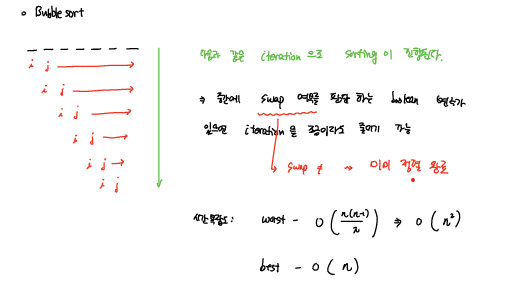 Bubble sort
i j
i j
i j
i j
i j
i j
다음과 같은 iteration 으로 sorting 이 진행된다.
⇒ 중간에 swap 여부를 판단 하는 boolean 변수가
있으면 iteration 을 조금이라도 줄이기 가능
swap ≠ → 이미 정렬 완료
시간복잡도: worst - O ( n(n-1) / 2 ) ⇒ O ( n² )
best - O ( n )